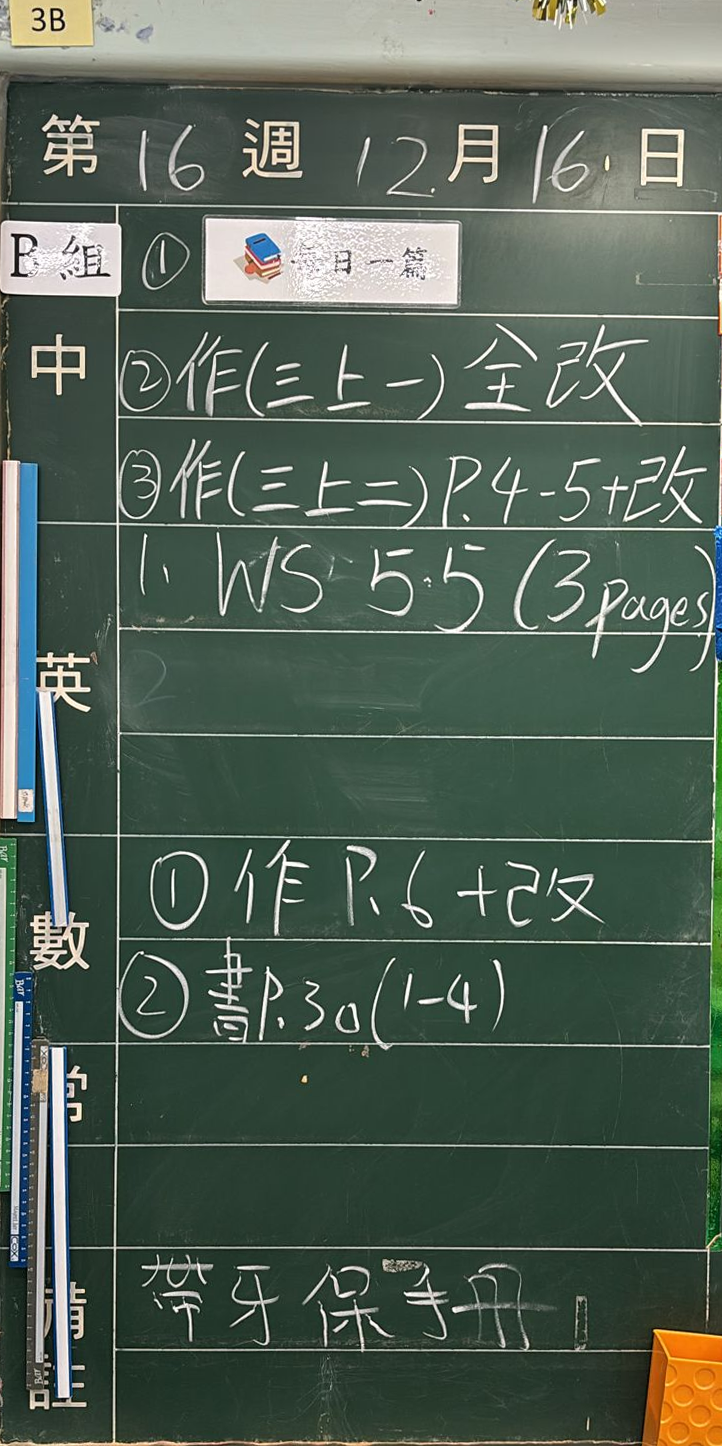 3B
第 16 週 12 月 16 日
B 組 ① 每日一篇
中
②作(三上一)全改
③作(三上二)P.4-5+改
1. WS 5.5 (3 pages)
英
2
①作 P.6 +改
數
②書P.30(1-4)
常
備註
帶牙保手冊